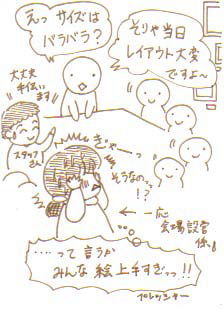 えっ サイズは
バラバラ？
そりゃ当日
レイアウト大変
ですよ〜
大丈夫
手伝い
ます
スタッフ
さん
ぎゃーっ
そうなのっ
!?
← 一応
会場設営
係。
････って言うか
みんな絵上手すぎっっ!!
プレッシャー